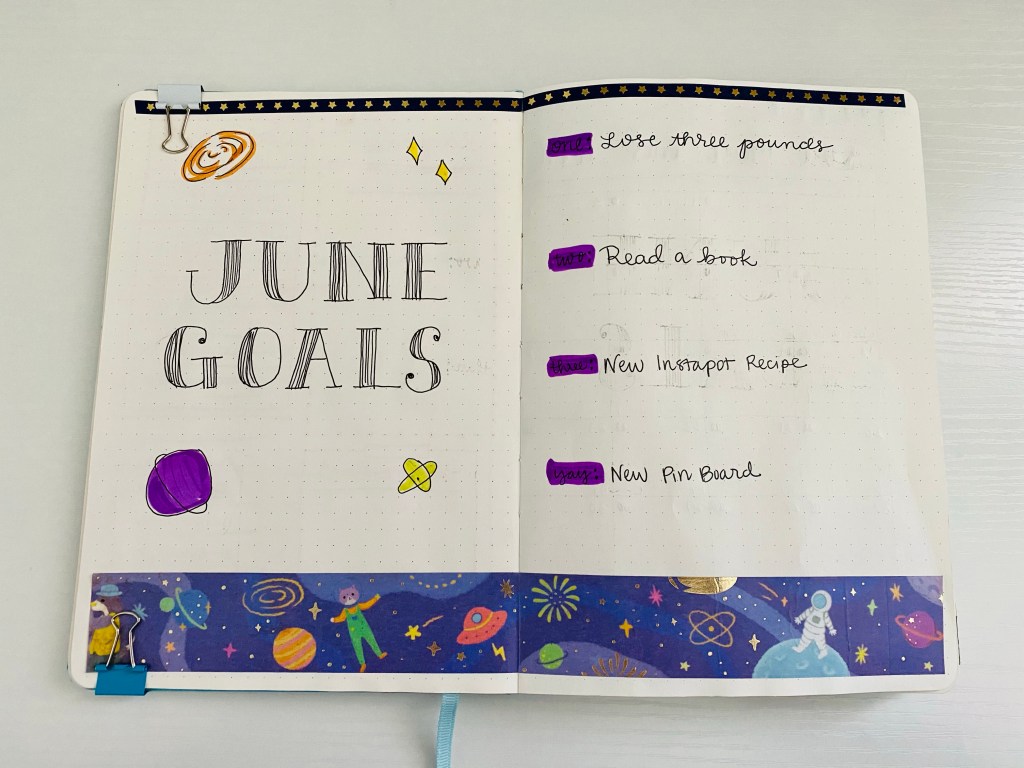 JUNE
GOALS
one: Lose three pounds
two: Read a book
three: New Instapot Recipe
yay: New Pin Board